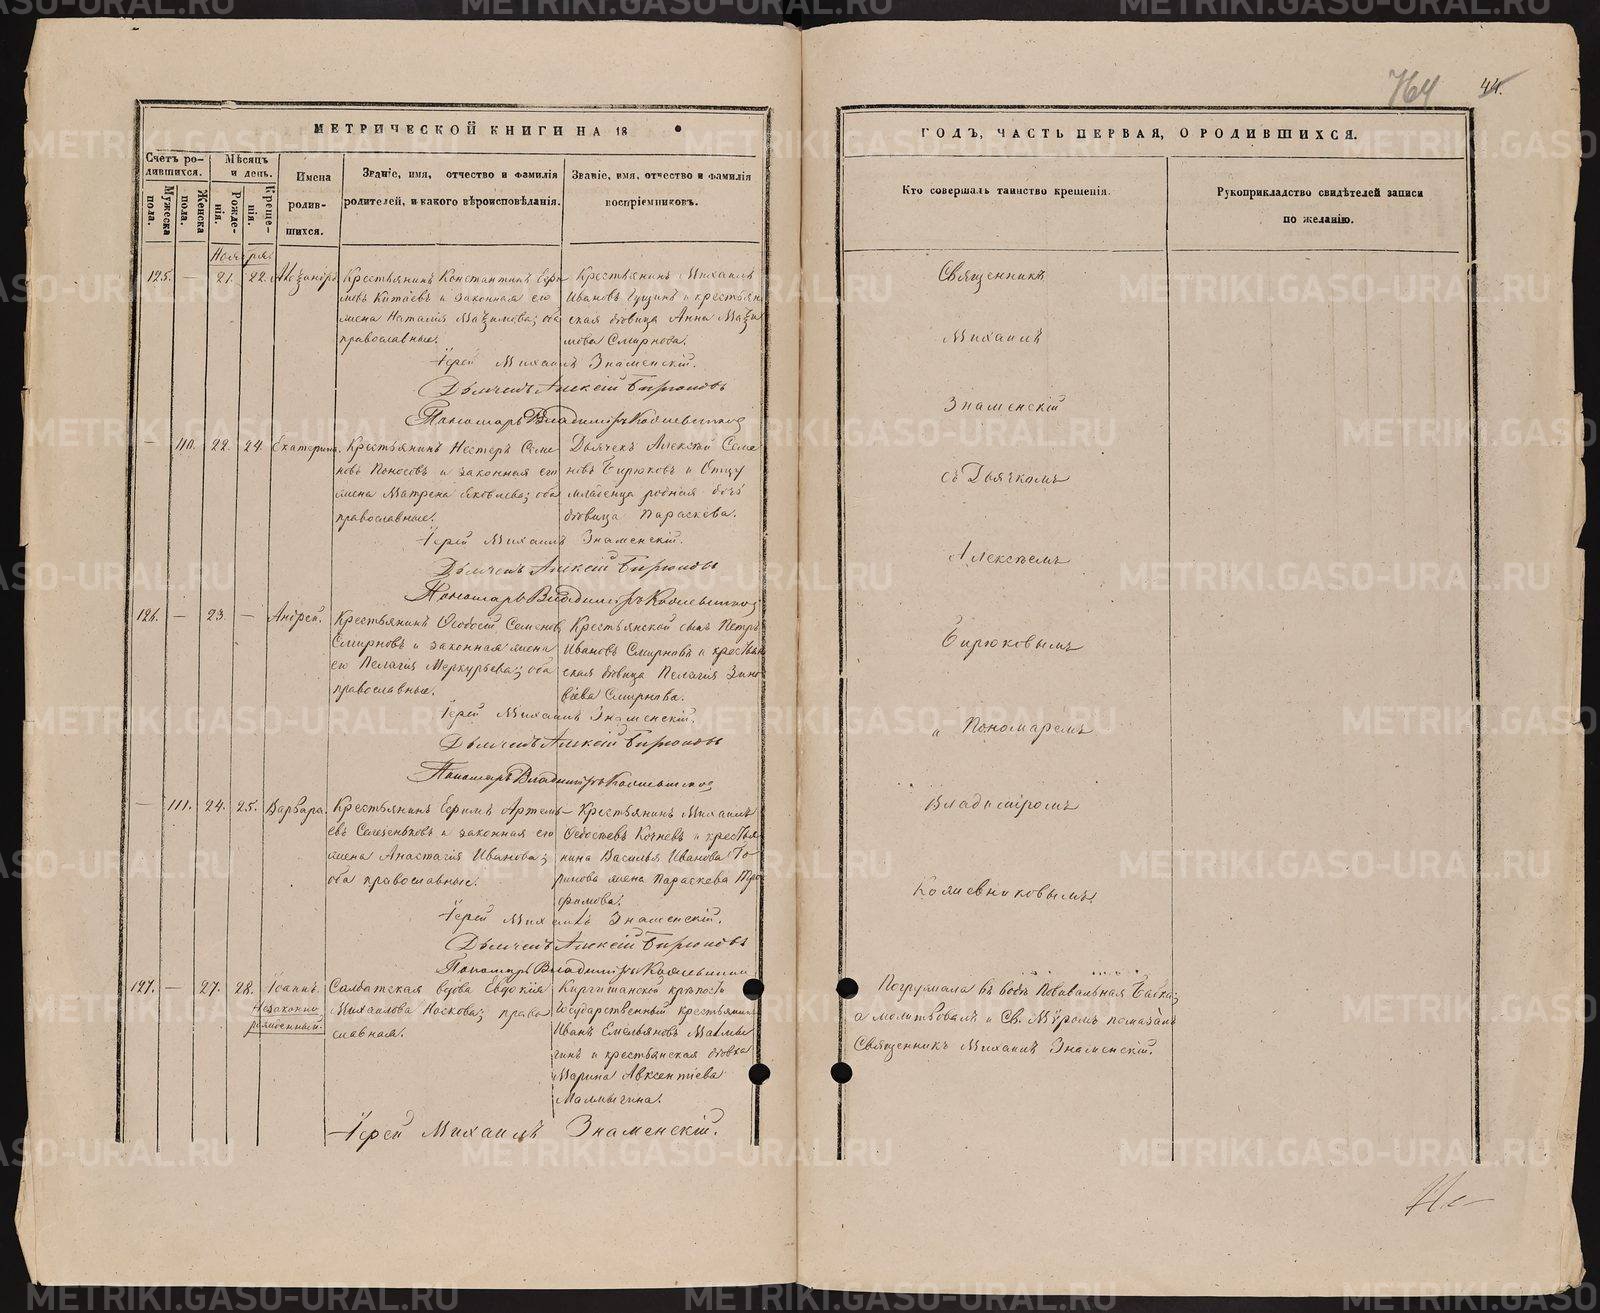 764 44.
МЕТРИЧЕСКОЙ КНИГИ НА 18
Счетъ родившихся.
Мужеска пола.
Женска пола.
Мѣсяцъ и день.
Рожденія.
Крещенія.
Имена родившихся.
Званіе, имя, отчество и фамилія родителей, и какого вѣроисповѣданія.
Званіе, имя, отчество и фамилія воспріемниковъ.
Ноября
125. — 21. 22. Александръ.
Крестьянинъ Константинъ
Китаевъ и законная его
жена Наталія Максимова; оба
православные.
Крестьянинъ Михаилъ
Ивановъ Гущинъ и крестьян-
ская дѣвица Анна Макси
мова Смирнова.
Іерей Михаилъ Знаменскій.
Дьячекъ Алексій Бирюковъ
Пономарь Владиміръ Кожевниковъ
— 110. 22. 24. Екатерина.
Крестьянинъ Нестеръ Семе
новъ Поносовъ и законная его
жена Матрена Яковлева; оба
православные.
Дьячекъ Алексій Семе
новъ Бирюковъ и Отцу
младенца родная дочь
дѣвица Параскева.
Іерей Михаилъ Знаменскій.
Дьячекъ Алексій Бирюковъ
Пономарь Владиміръ Кожевниковъ
126. — 23. — Андрей.
Крестьянинъ Ѳедосій Семенов
Смирновъ и законная жена
его Пелагія Меркурьева; оба
православные.
Крестьянской сынъ Петръ
Ивановъ Смирновъ и крестьян
ская дѣвица Пелагія Зино
віева Смирнова.
Іерей Михаилъ Знаменскій.
Дьячекъ Алексій Бирюковъ
Пономарь Владиміръ Кожевниковъ
— 111. 24. 25. Варвара.
Крестьянинъ Ефимъ Артемь-
евъ Селезеньковъ и законная его
жена Анастасія Иванова;
оба православные.
Крестьянинъ Михаилъ
Ѳедосѣевъ Кочневъ и крестья
нина Василья Иванова
жена Параскева Тро
фимова.
Іерей Михаилъ Знаменскій.
Дьячекъ Алексій Бирюковъ
Пономарь Владиміръ Кожевников
127. — 27. 28. Іоаннъ.
Незаконно
рожденный.
Солдатская вдова Евдокія
Михаилова Носкова; право
славная.
Киргишанской крѣпости
Государственный крестьянинъ
Иванъ Емельяновъ Малмы
гинъ и крестьянская дѣвка
Марина Авксентіева
Малмыгина.
Іерей Михаилъ Знаменскій.
ГОДЪ, ЧАСТЬ ПЕРВАЯ, О РОДИВШИХСЯ.
Кто совершалъ таинство крещенія.
Рукоприкладство свидѣтелей записи по желанію.
Священникъ
Михаилъ
Знаменскій
съ Дьячкомъ
Алексѣемъ
Бирюковымъ
и Пономаремъ
Владиміромъ
Кожевниковымъ.
Погружала въ воду Повивальная Бабка;
а молитвовалъ и Св. Мѵромъ помазалъ
Священникъ Михаилъ Знаменскій.
METRIKI.GASO-URAL.RU